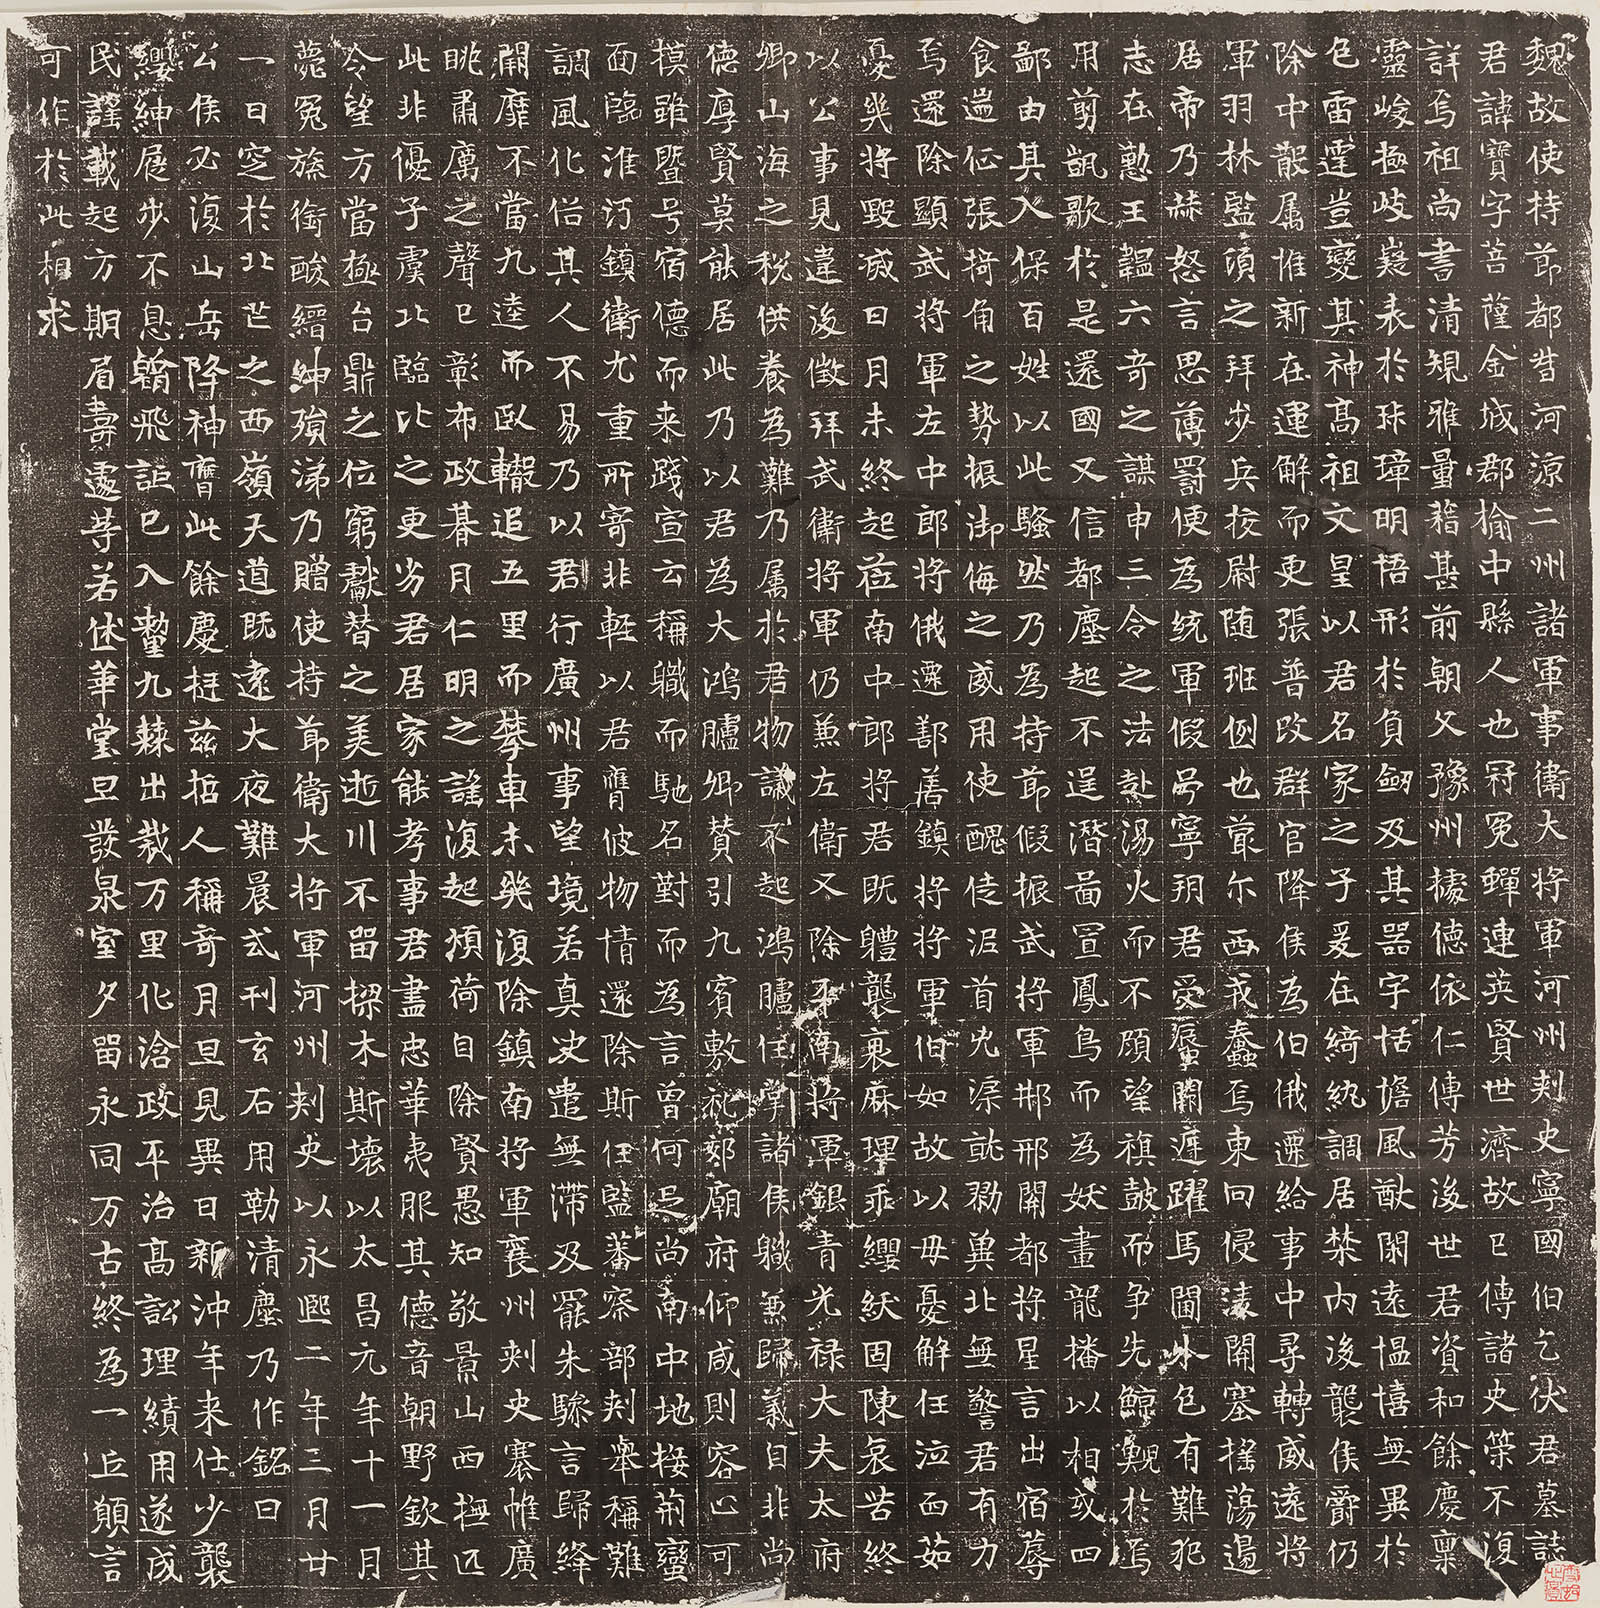 魏故使持節都督河涼二州諸軍事衛大將軍河州刾史寧國伯乞伏君墓誌
君諱寶字菩薩金城郡榆中縣人也冠冕蟬連英賢世濟故已傳諸史筞不復
詳焉祖尚書清規雅量藉甚前朝父豫州據德依仁傳芳浚世君資和餘慶稟
靈峻極岐嶷表於珪璋明悟形於負劒及其器宇恬憺風猷閑遠愠憘無異於
色雷霆豈變其神高祖文皇以君名家之子爰在綺紈調居禁內浚襲侯爵仍
除中散属惟新在運解而更張普改群官降侯為伯俄遷給事中尋轉威遠將
軍羽林監頃之拜步兵挍尉随班例也蕞尒西戎蠢焉東向侵溱開塞摇蕩邊
居帝乃赫怒言思薄罰使為統軍假号寧朔君受蜃闕遅躍馬閫外包有難犯
志在懃王韞六奇之謀申三令之法赴湯火而不頋望旗鼓而争先鯨鯢於焉
用剪凱歌於是還國又信都塵起不逞潛畐罝鳳鳥而為妖畫龍播以相或四
鄙由其入保百姓以此騷㷊乃為持節假振武將軍邯邢關都將星言出宿蓐
食遄征張掎角之勢振御侮之威用使醜徒泥首凶渠就勠冀北無警君有力
焉還除顯武將軍左中郎將俄遷鄯善鎮將將軍伯如故以毋憂解任泣血茹
憂幾將毀滅日月未終起莅南中郎將君既軆襲衰麻理乖纓紱固陳哀苦終
以公事見違浚徵拜武衛將軍仍兼左衛又除平南將軍銀青光禄大夫太府
卿山海之税供養為難乃属於君物議不起鴻臚任掌諸侯軄兼歸義自非尚
德厚賢莫能居此乃以君為大鴻臚卿賛引九賓敷礼郊廟府仰咸則容止可
摸雖暨号宿德而来踐宣云稱軄而馳名對而為言曾何足尚南中地接荊蠻
面臨淮沔鎮衛尤重所寄非輕以君膺彼物情還除斯任監蕃察部刾舉稱難
調風化俗其人不易乃以君行廣州事望境若真史遣無滯及罷朱驂言歸絳
闕靡不當九逵而臥轍追五里而攀車未幾復除鎮南將軍襄州刾史褰帷廣
眺肅厲之聲已彰布政朞月仁明之謡復起煩荷自除賢愚知敬景山西撫匹
此非優子虞北臨比之更劣君居家能孝事君盡忠華夷服其德音朝野欽其
令望方當極台鼎之位窮獻替之美逝川不留樑木斯壞以太昌元年十一月
薨冕旒銜酸縉紳殞涕乃贈使持節衛大將軍河州刾史以永熙二年三月廿
一日窆於北芒之西嶺天道既遠大夜難晨式刊玄石用勒清塵乃作銘曰
公侯必復山岳降神膺此餘慶挺兹哲人稱奇月旦見異日新沖年来仕少襲
纓紳屐步不息翰飛詎已入掌九棘出裁万里化洽政平治髙訟理績用遂成
民謡載起方期眉壽遽荨若伏華堂旦發泉室夕留永同万古終為一丘願言
可作於此相求